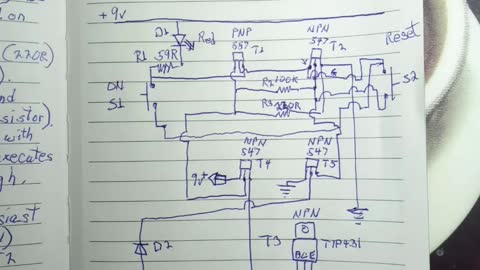 +9v
D1
Red
PNP
557
T1
NPN
547
T2
Reset
R1 59R
R2 100K
ON
S1
S2
NPN
547
T4
NPN
547
T5
9v+
D2
T3
NPN
TIP31
BCE
(220R
and
sistor)
with
xecates
gh.
siast